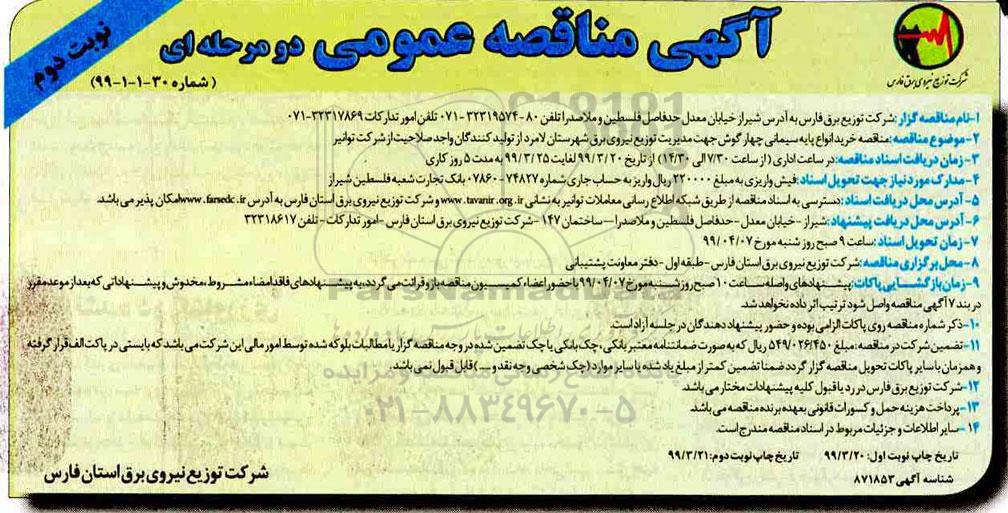 آگهی مناقصه عمومی دو مرحله ای
نوبت دوم
(شماره ۳۰-۱-۱-۹۹)
شرکت توزیع نیروی برق فارس
۱-نام مناقصه گزار :شرکت توزیع برق فارس به آدرس شیراز خیابان معدل حدفاصل فلسطین و ملاصدرا تلفن ۸۰-۳۲۳۱۹۵۷۴-۰۷۱ تلفن امور تدارکات ۳۲۳۱۷۸۶۹-۰۷۱
۲-موضوع مناقصه: مناقصه خرید انواع پایه سیمانی چهار گوش جهت مدیریت توزیع نیروی برق شهرستان لامرد از تولید کنندگان واجد صلاحیت از شرکت توانیر
۳- زمان دریافت اسناد مناقصه: در ساعت اداری ( از ساعت ۷/۳۰ الی ۱۴/۳۰) از تاریخ ۹۹/۳/۲۰ لغایت ۹۹/۳/۲۵ به مدت ۵ روز کاری
۴-مدارک مورد نیاز جهت تحویل اسناد :فیش واریزی به مبلغ ۲۲۰۰۰۰ ریال واریز به حساب جاری شماره ۷۴۸۲۷-۰۷۸۶۰ بانک تجارت شعبه فلسطین شیراز
۵- آدرس محل دریافت اسناد: دسترسی به اسناد مناقصه از طریق شبکه اطلاع رسانی معاملات توانیر به نشانی www.tavanir.org.ir و شرکت توزیع نیروی برق استان فارس به آدرس www.farsedc.ir امکان پذیر می باشد
۶- آدرس محل دریافت پیشنهاد :شیراز -خیابان معدل -حدفاصل فلسطین و ملاصدرا- ساختمان ۱۴۷ -شرکت توزیع نیروی برق استان فارس -امور تدارکات -تلفن ۳۲۳۱۸۶۱۷
۷- زمان تحویل اسناد :ساعت ۹ صبح روز شنبه مورخ ۹۹/۰۴/۰۷
۸- محل برگزاری مناقصه: شرکت توزیع نیروی برق استان فارس -طبقه اول -دفتر معاونت پشتیبانی
۹- زمان بازگشایی پاکات: پیشنهادهای واصله ساعت ۱۰ صبح روز شنبه مورخ ۹۹/۰۴/۰۷ با حضور اعضاء کمیسیون مناقصه باز و قرائت می گردد، به پیشنهادهای فاقد امضاء، مشروط، مخدوش و پیشنهاداتی که بعد از موعد مقرر
در بند ۷ آگهی مناقصه واصل شود ترتیب اثر داده نخواهد شد.
۱۰-ذکر شماره مناقصه روی پاکات الزامی بوده و حضور پیشنهاد دهندگان در جلسه آزاد است.
۱۱-تضمین شرکت در مناقصه: مبلغ ۵۴۹/۰۲۶/۴۵۰ ریال که به صورت ضمانتنامه معتبر بانکی، چک بانکی یا چک تضمین شده در وجه مناقصه گزار یا مطالبات بلوکه شده توسط امور مالی این شرکت می باشد که بایستی در پاکت الف قرار گرفته
و همزمان با سایر پاکات تحویل مناقصه گزار گردد ضمنا تضمین کمتر از مبلغ یاد شده یا سایر موارد (چک شخصی وجه نقد و ...) قابل قبول نمی باشد.
۱۲-شرکت توزیع برق فارس در رد یا قبول کلیه پیشنهادات مختار می باشد.
۱۳-پرداخت هزینه حمل و کسورات قانونی بعهده برنده مناقصه می باشد.
۱۴-سایر اطلاعات و جزئیات مربوط در اسناد مناقصه مندرج است.
تاریخ چاپ نوبت اول: ۹۹/۳/۲۰ تاریخ چاپ نوبت دوم: ۹۹/۳/۲۱
شناسه آگهی ۸۷۱۸۵۳
شرکت توزیع نیروی برق استان فارس
ParsNamadData
۰۲۱-۸۸۳۴۹۶۷۰-۵